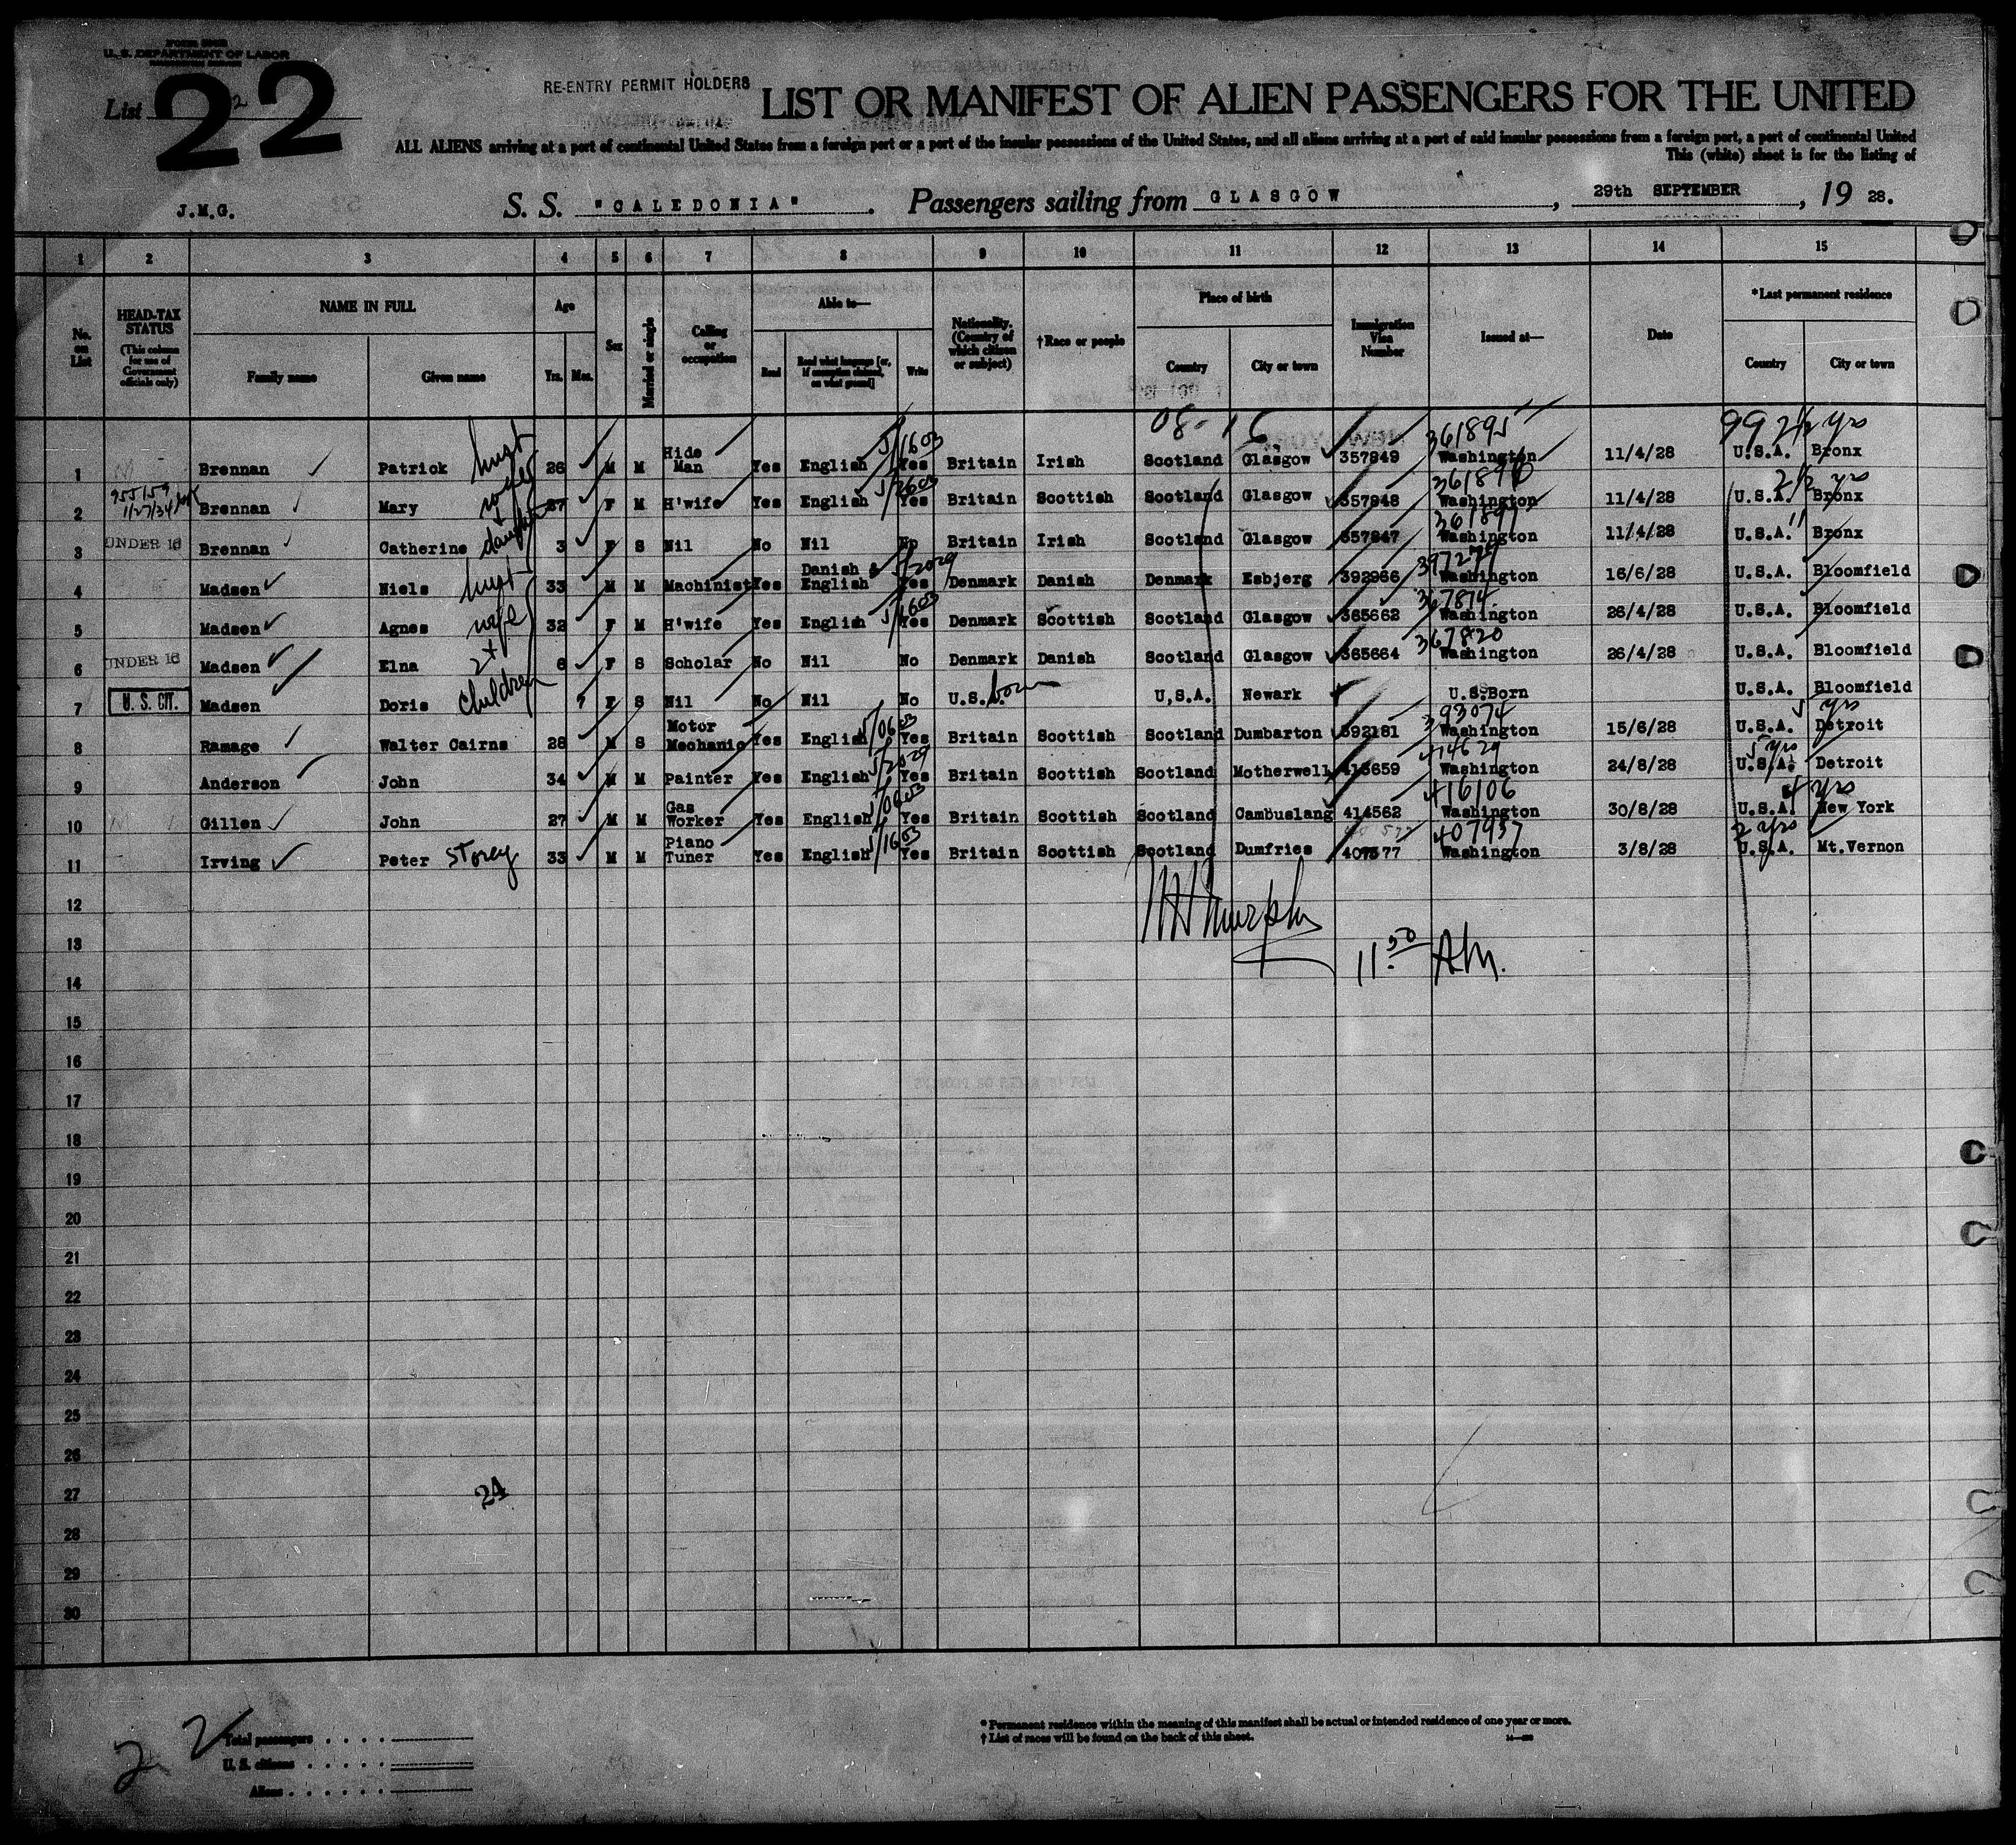 U. S. DEPARTMENT OF LABOR
List 22
RE-ENTRY PERMIT HOLDERS
LIST OR MANIFEST OF ALIEN PASSENGERS FOR THE UNITED
ALL ALIENS arriving at a port of continental United States from a foreign port or a port of the insular possessions of the United States, and all aliens arriving at a port of said insular possessions from a foreign port, a port of continental United
This (white) sheet is for the listing of
J.M.G. S. S. "CALEDONIA" . Passengers sailing from GLASGOW , 29th SEPTEMBER , 19 28.
1 2 3 4 5 6 7 8 9 10 11 12 13 14 15
No. on List
HEAD-TAX STATUS (This column for use of Government officials only)
NAME IN FULL Family name Given name
Age Yrs. Mos.
Sex
Married or single
Calling or occupation
Able to— Read Read what language [or, if exemption claimed, on what ground] Write
Nationality. (Country of which citizen or subject)
†Race or people
Place of birth Country City or town
Immigration Visa Number
Issued at—
Date
*Last permanent residence Country City or town
08-16 99
1 Brennan Patrick husb 26 M M Hide Man Yes English 5/1603 Yes Britain Irish Scotland Glasgow 357849 361895 Washington 11/4/28 U.S.A. 2½ yrs Bronx
2 Brennan Mary wife 27 F M H'wife Yes English Yes Britain Scottish Scotland Glasgow 357848 Washington 11/4/28 U.S.A. 2½ yrs Bronx
3 UNDER 16 Brennan Catherine daughter 3 F S Nil No Nil No Britain Irish Scotland Glasgow 357847 361897 Washington 11/4/28 U.S.A. " Bronx
4 Madsen Niels husb 33 M M Machinist Yes Danish & English 5/2029 Yes Denmark Danish Denmark Esbjerg 392966 397279 Washington 16/6/28 U.S.A. Bloomfield
5 Madsen Agnes wife 32 F M H'wife Yes English 5/1603 Yes Denmark Scottish Scotland Glasgow 365662 367874 Washington 26/4/28 U.S.A. Bloomfield
6 UNDER 16 Madsen Elna 2+ 6 F S Scholar No Nil No Denmark Danish Scotland Glasgow 365664 367820 Washington 26/4/28 U.S.A. Bloomfield
7 U. S. CIT. Madsen Doris children F S Nil No Nil No U.S. born U.S.A. Newark U.S.Born U.S.A. Bloomfield
8 Ramage Walter Cairns 28 M S Motor Mechanic Yes English Yes Britain Scottish Scotland Dumbarton 392181 393074 Washington 15/6/28 U.S.A. 5 yrs Detroit
9 Anderson John 34 M M Painter Yes English 5/2029 Yes Britain Scottish Scotland Motherwell 413659 414629 Washington 24/8/28 U.S.A. 5 yrs Detroit
10 Gillen John 27 M M Gas Worker Yes English Yes Britain Scottish Scotland Cambuslang 414562 416106 Washington 30/8/28 U.S.A. 4 yrs New York
11 Irving Peter Storey 33 M M Piano Tuner Yes English 5/1603 Yes Britain Scottish Scotland Dumfries 407577 407937 Washington 3/8/28 U.S.A. 2 yrs Mt.Vernon
12
Murphy
13
11 50 AM.
14
15
16
17
18
19
20
21
22
23
24
25
26
27
24
28
29
30
2 2
Total passengers
U. S. citizens
Aliens
* Permanent residence within the meaning of this manifest shall be actual or intended residence of one year or more.
† List of races will be found on the back of this sheet.